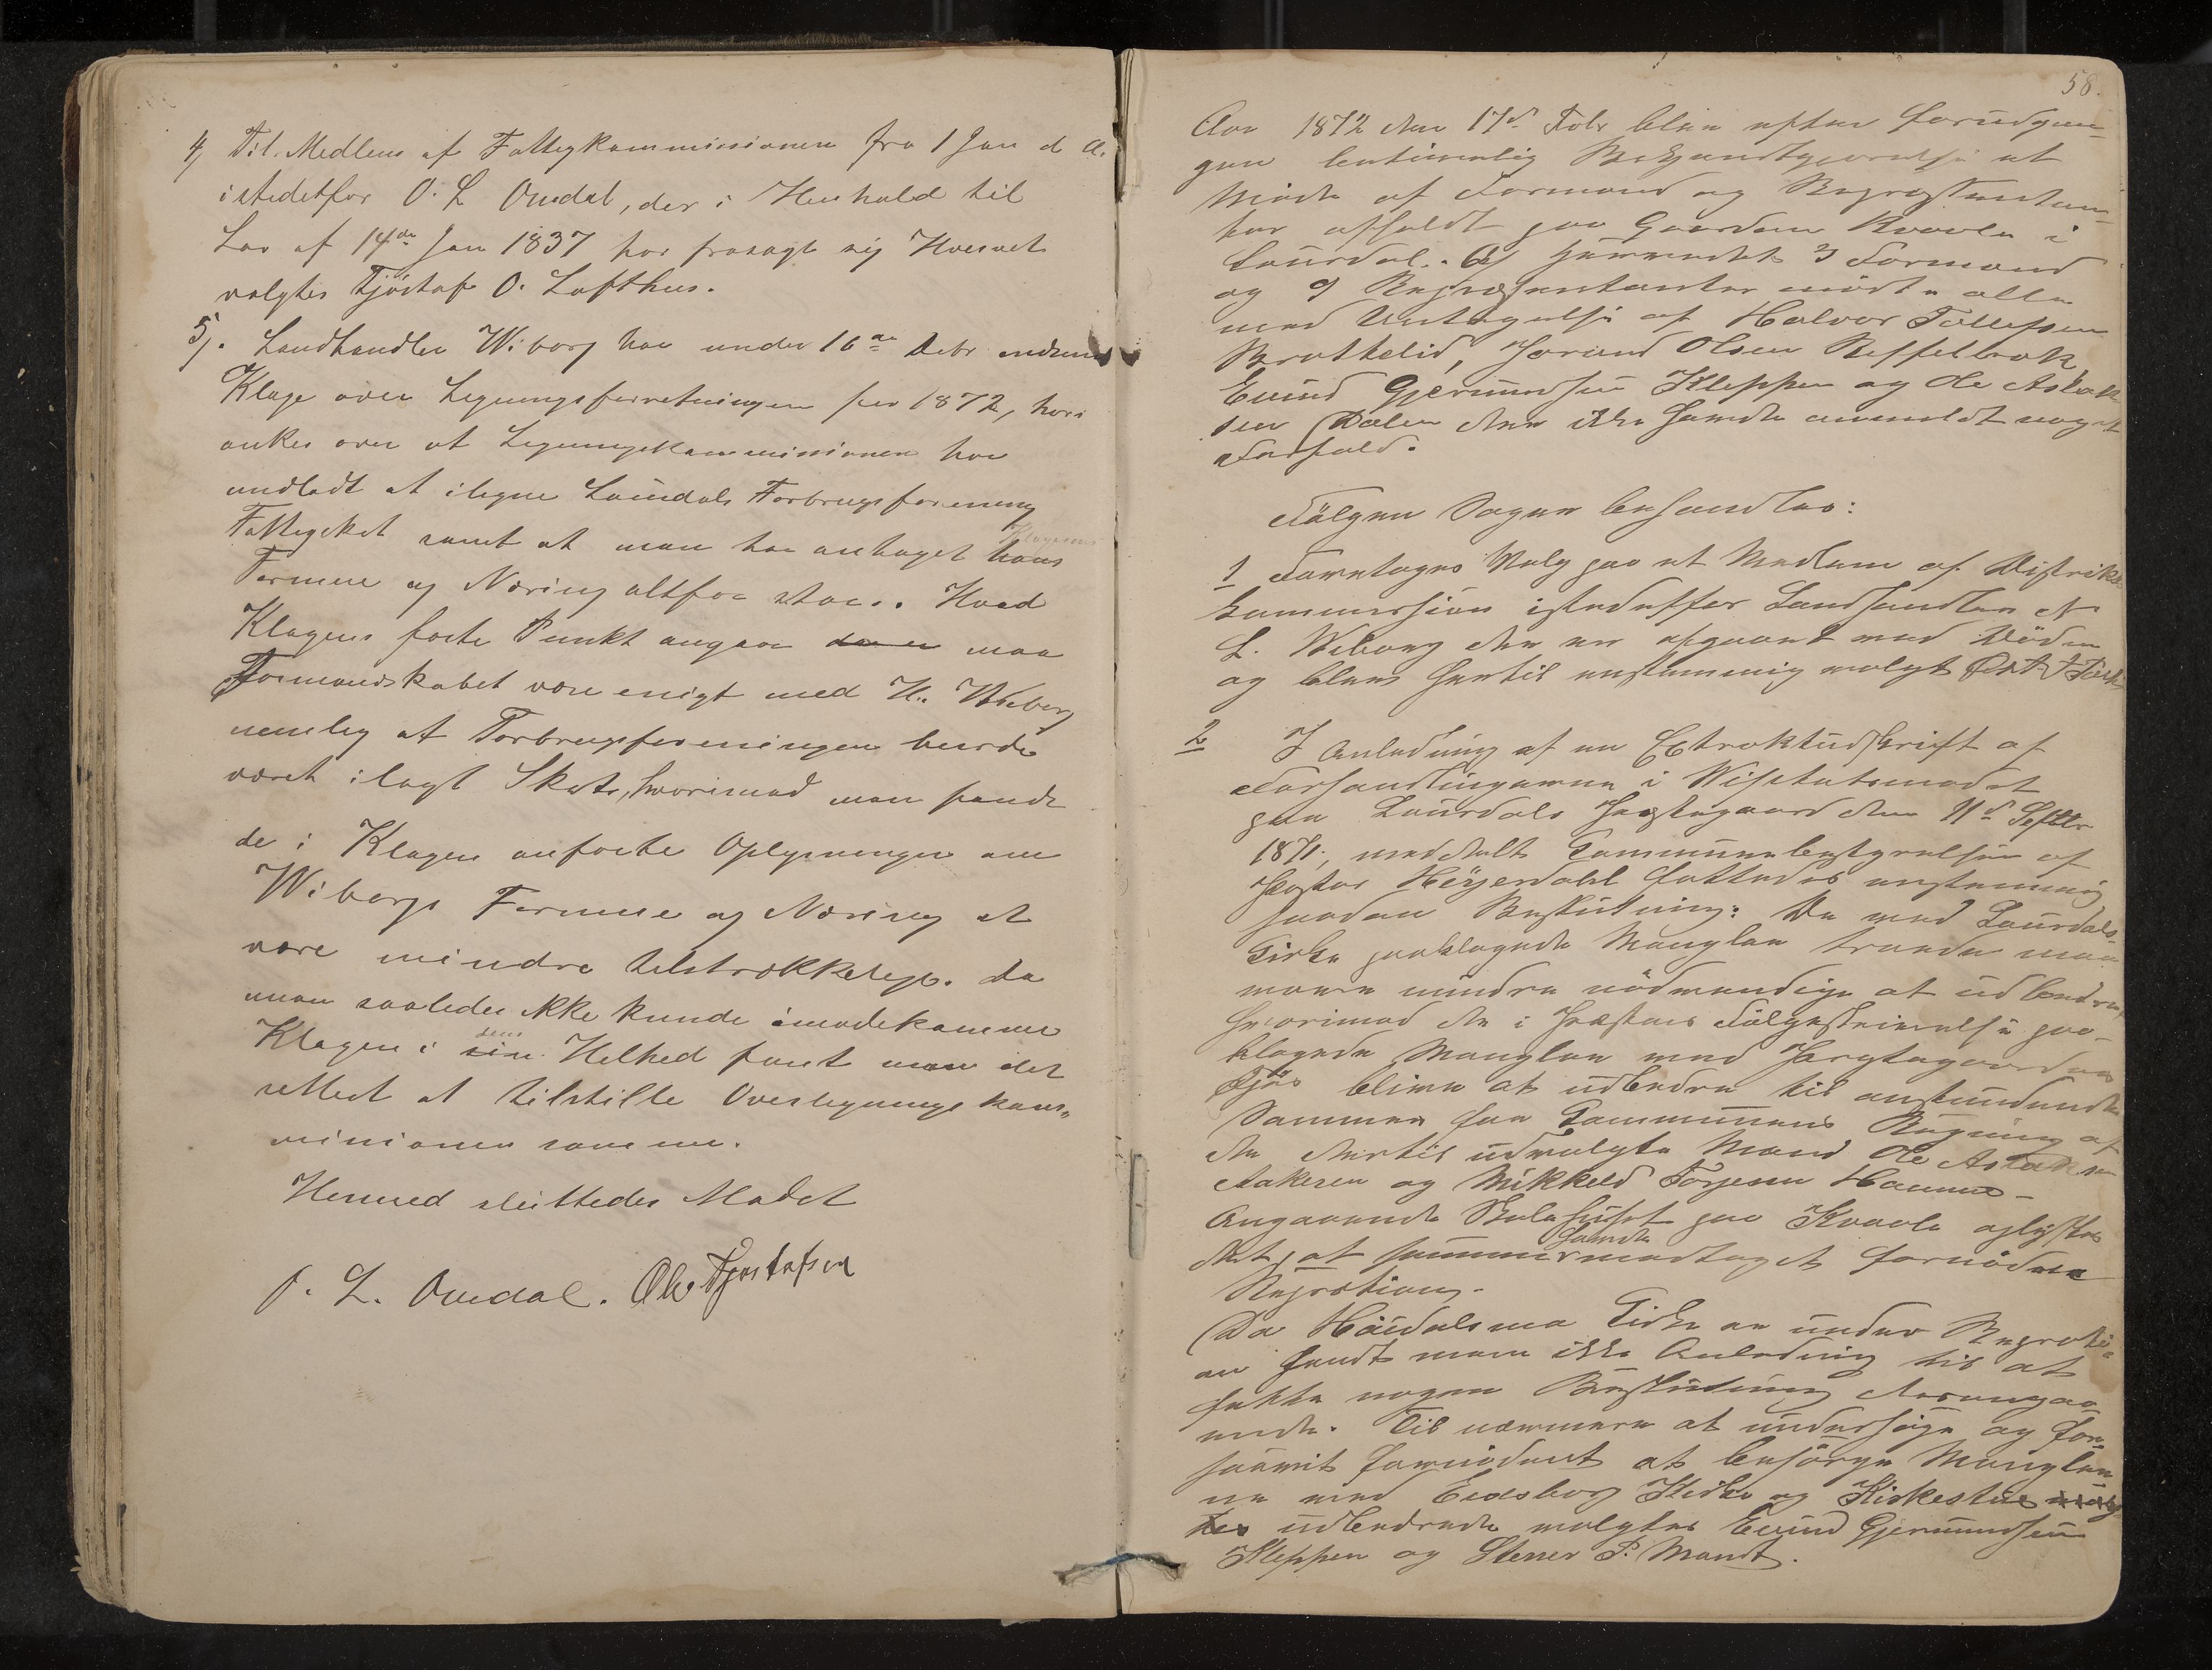 4, Til Medlem af Fattigkommissionen fra 1 Jan d A.
istedetfor O. L Omdal, der i Henhold til
Lov af 14de Jan 1837 har frasagt sig Hvervet
valgtes Tjöstof O. Lofthus.
5,. Landhandler Wiborg har under 16de Debr
Klage over Ligningsforretningen for 1872, hvori
ankes over at Ligningskommissionen har
undladt at iligne Laurdals Forbrugsforening
Fattigskat samt at man har antaget hans Klagerens
Formue og Næring altfor stor. Hvad
Klagens første Punkt angaar maa
Formandskabet være enigt med Hr. Wiborg
nemlig at Forbrugsforeningen burde
været ilagt Skat, hvorimod man fandt
de i Klagen anførte Oplysninger om
Wiborgs Formue og Næring at
være mindre tilstrækkelige. Da
man saaledes ikke kunde imødekomme
Klagen i sin dens Helhed fant man det
rettest at tilstille Overligningskom„
missionen samme.
Hermed sluttedes Mødet
O. L. Omdal. Ole Tjostofsen
58.
Aar 1872 den 17de Febr blev efter forudgan„
gen betimelig Bekjendtgjørelse et
Møde af Formænd og Repræsentan„
ter afholdt paa Gaarden Kvaale i
Laurdal. Af 3 Formænd
og 9 Repræsentanter mødte alle
med Undtagelse af Halvor Tollefsen
Brottelid, Jørund Olsen Bessebæk
Eivind Gjermundsen Kleppen og Ole Aslak
sen Dalen der ikke havde anmeldt noget
Forfald.
Følgen Sager behandles:
1 Foretoges Valg paa et Medlem af Distrikts
kommission istedetfor Landhandler N
L. Wiborg der er afgaaet ved Døden
og blev hertil enstemmig valgt
2 I Anledning af en Extraktudskrift af
Forhandlingerne i Visitatsmødet
paa Laurdals Præstegaard den 11te Septbr
1871, meddelt Communebestyrelsen af
Pastor Heyerdahl fattedes enstemmig
saadan Beslutning: De ved Laurdals„
Kirke paaklagede Mangler troede man
være mindre nødvendige at udbedre,
hvorimod de i Præstens Følgeskrivelse paa„
klagede Mangler ved Præstegaardens
Fjøs bliver at udbedre til anstundende
Sommer for Communens Regning af
de dertil udvalgte Mænd Ole Aslaksen
Aakeren og Mikkel Torjesen Haumo–
Angaaende Skolehuset paa Kvaale oplystes
det, at samme havde modtaget fornøden
Repration.
Da Høidalsmo Kirke er under Reprati„
on fandt man ikke Anledning til at
fatte nogen Beslutning derangaa„
ende. Til nærmere at undersøge og for„
saavit fornødent at besørge Mangler„
ne ved Eidsborg Kirke og Kirkestue
udbedrede valgtes Eivind Gjermundsen
Kleppen og Stener P. Mandt.